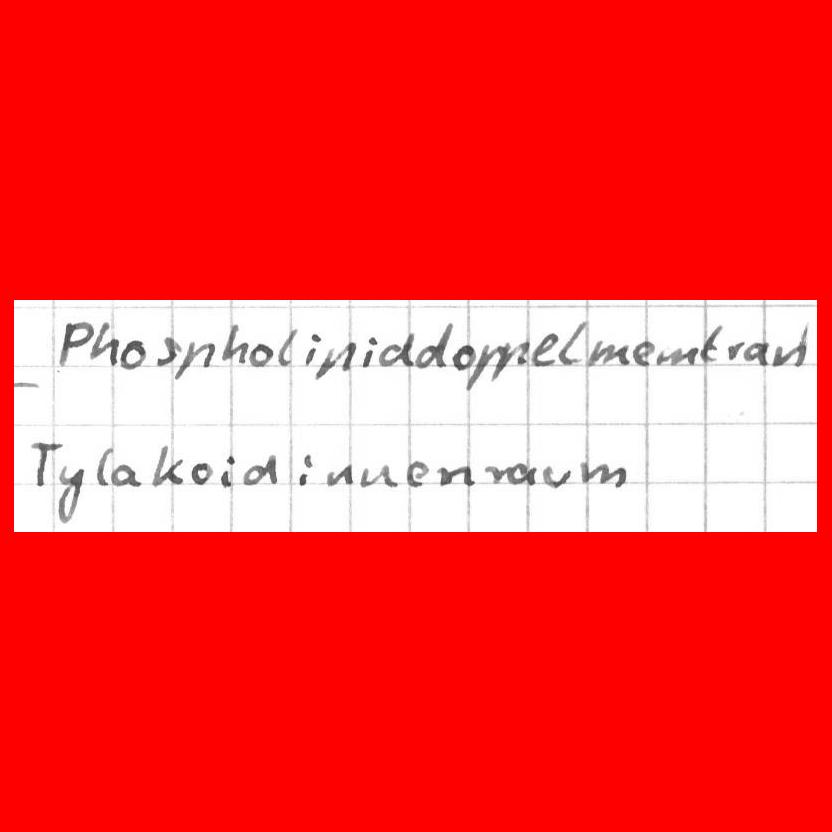 Phospholipiddoppelmembran
Tylakoidinnenraum